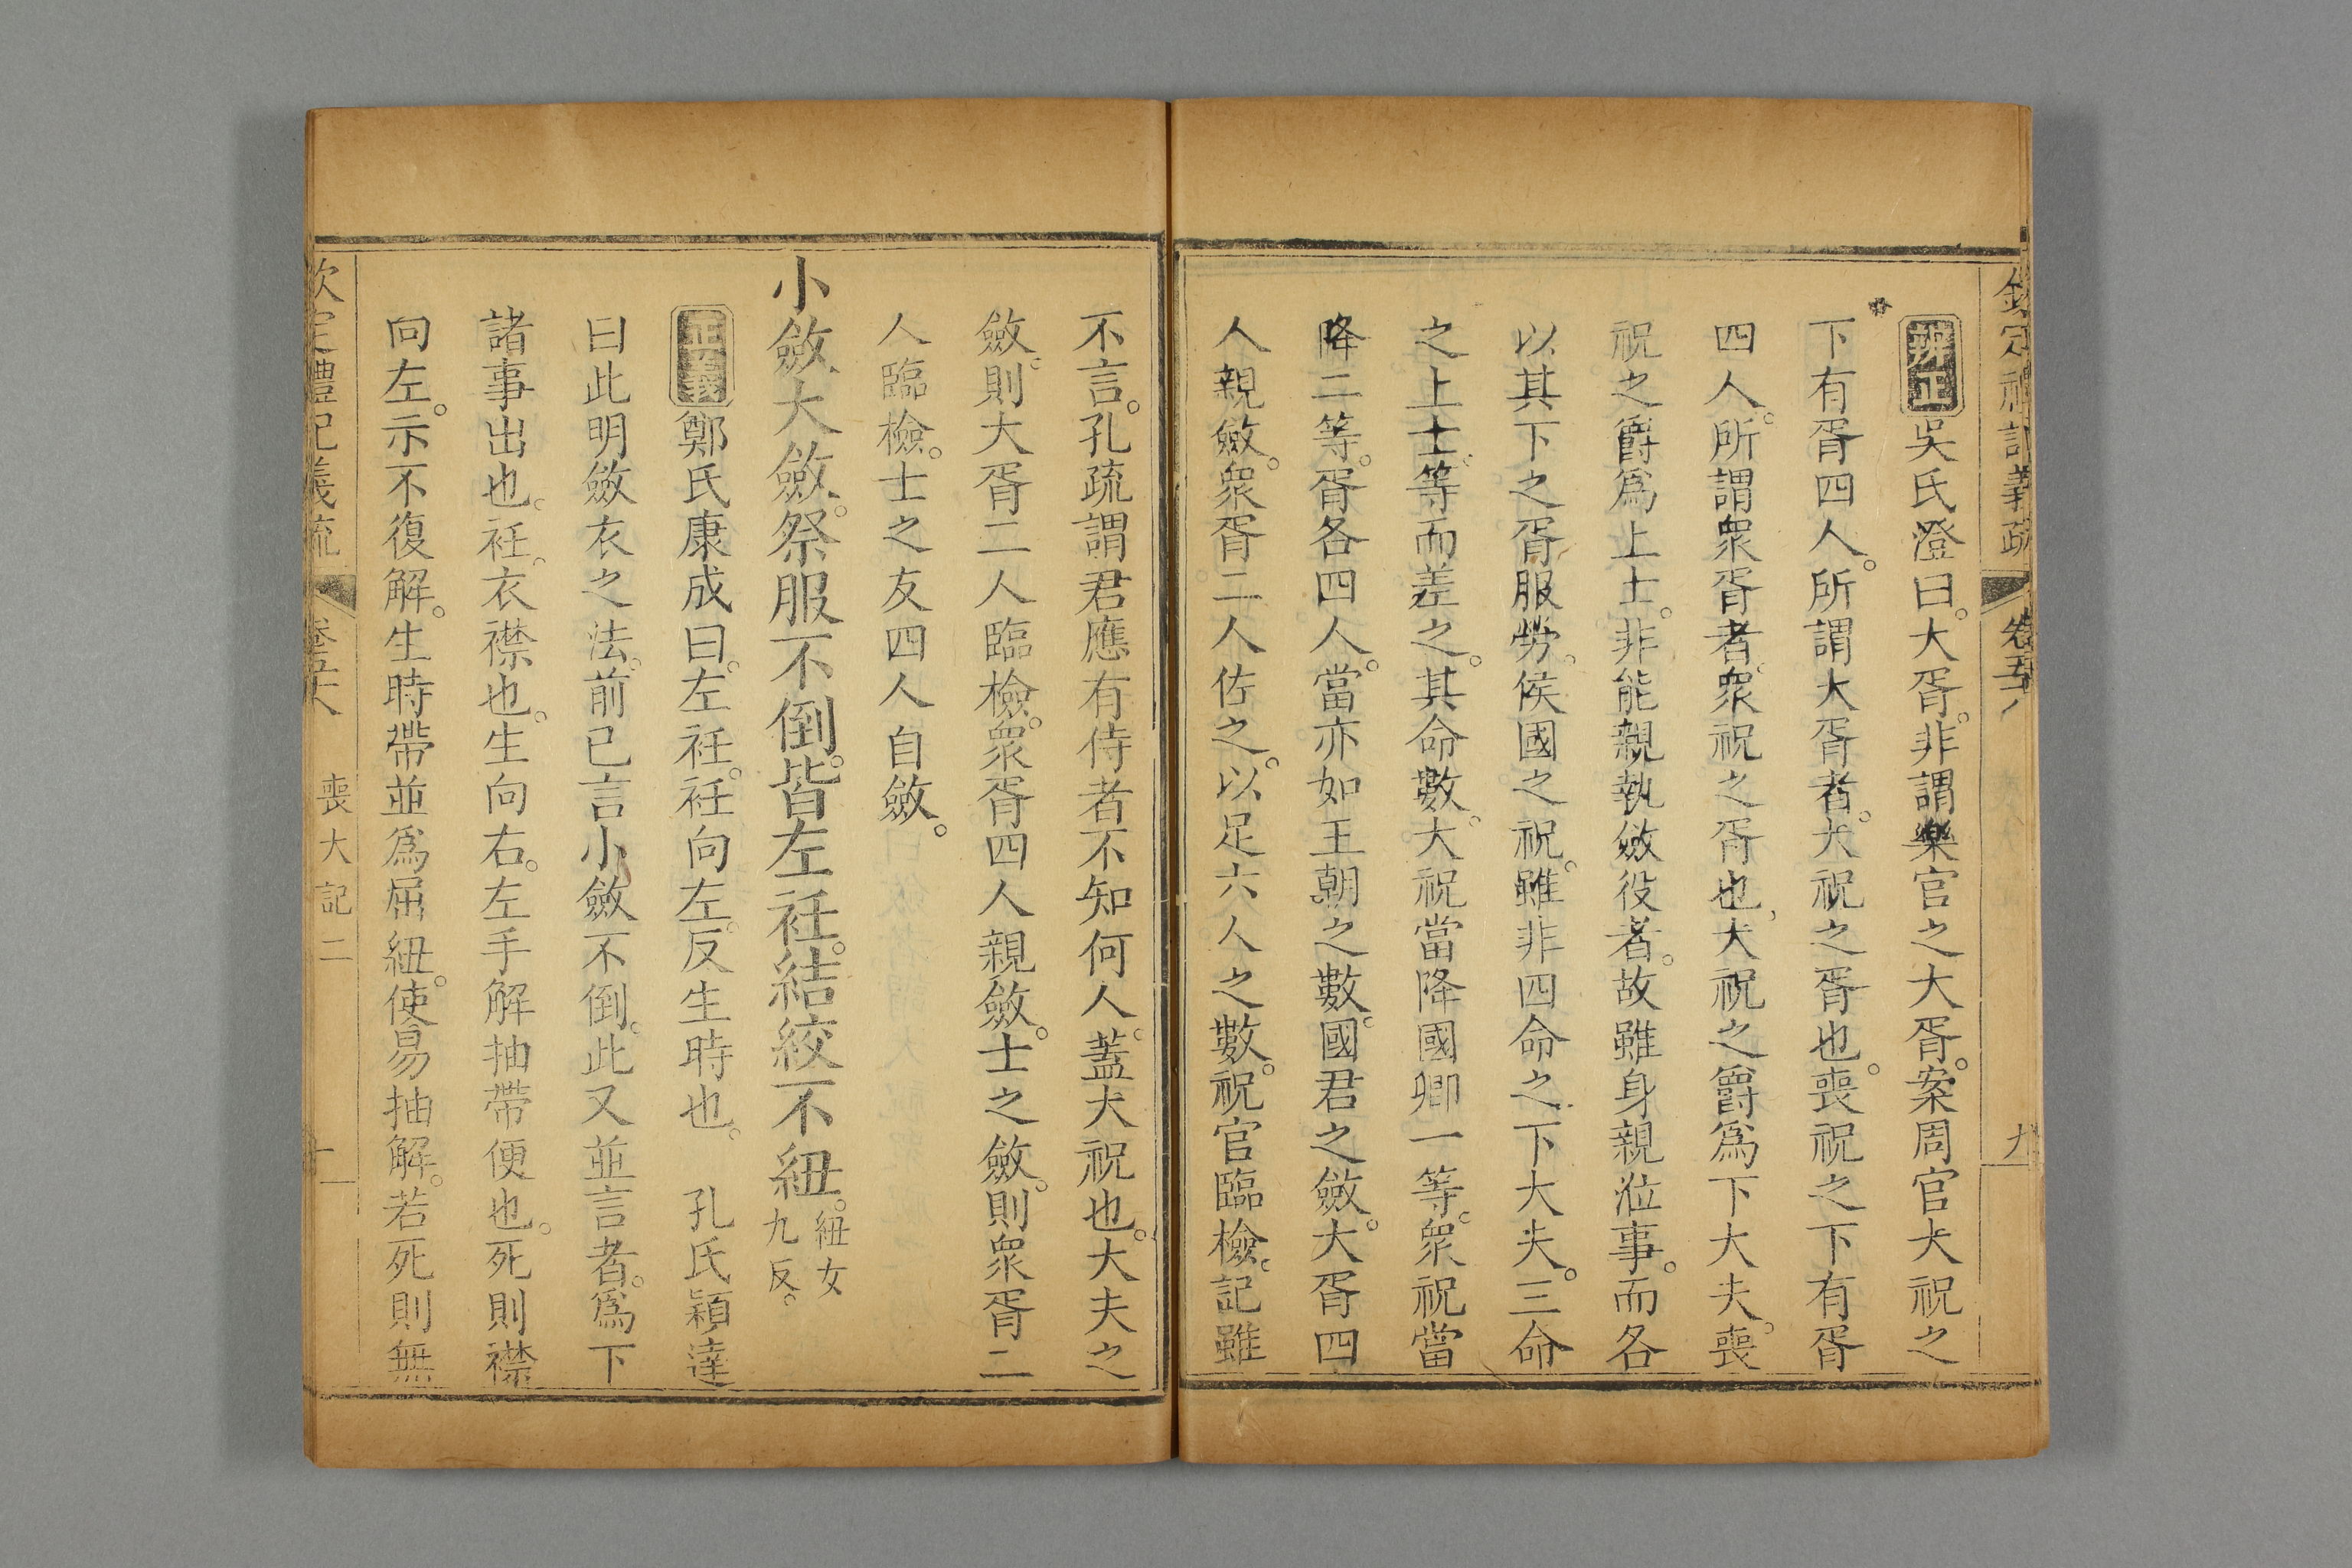 欽定禮記義疏 卷五十八 九
辨正吳氏澄曰大胥非謂樂官之大胥案周官大祝之
下有胥四人所謂大胥者大祝之胥也喪祝之下有胥
四人所謂衆胥者衆祝之胥也大祝之爵爲下大夫喪
祝之爵爲上士非能親執斂役者故雖身親涖事而各
以其下之胥服勞侯國之祝雖非四命之下大夫三命
之上士等而差之其命數大祝當降國卿一等衆祝當
降二等胥各四人當亦如王朝之數國君之斂大胥四
人親斂衆胥二人佐之以足六人之數祝官臨檢記雖
不言孔疏謂君應有侍者不知何人蓋大祝也大夫之
斂則大胥二人臨檢衆胥四人親斂士之斂則衆胥二
人臨檢士之友四人自斂
小斂大斂祭服不倒皆左衽結絞不紐紐女九反
正義鄭氏康成曰左衽衽向左反生時也 孔氏穎達
曰此明斂衣之法前已言小斂不倒此又並言者爲下
諸事出也衽衣襟也生向右左手解抽帶便也死則襟
向左示不復解生時帶並爲屈紐使易抽解若死則無
欽定禮記義疏 卷五十八 喪大記二 十一